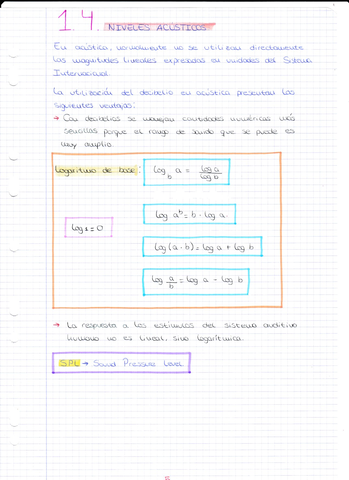 1.4. NIVELES ACÚSTICOS
En acústica, normalmente no se utilizan directamente
las magnitudes lineales expresadas en unidades del Sistema
Internacional.
La utilización del decibelio en acústica presentan las
siguientes ventajas:
→ Con decibelios se manejan cantidades numéricas más
sencillas porque el rango de sonido que se puede es
muy amplio.
Logaritmo de base: log_b a = log a / log b
log a^b = b · log a
log 1 = 0
log (a · b) = log a + log b
log a/b = log a - log b
→ La respuesta a los estímulos del sistema auditivo
humano no es lineal, sino logarítmica.
SPL → Sound Pressure Level